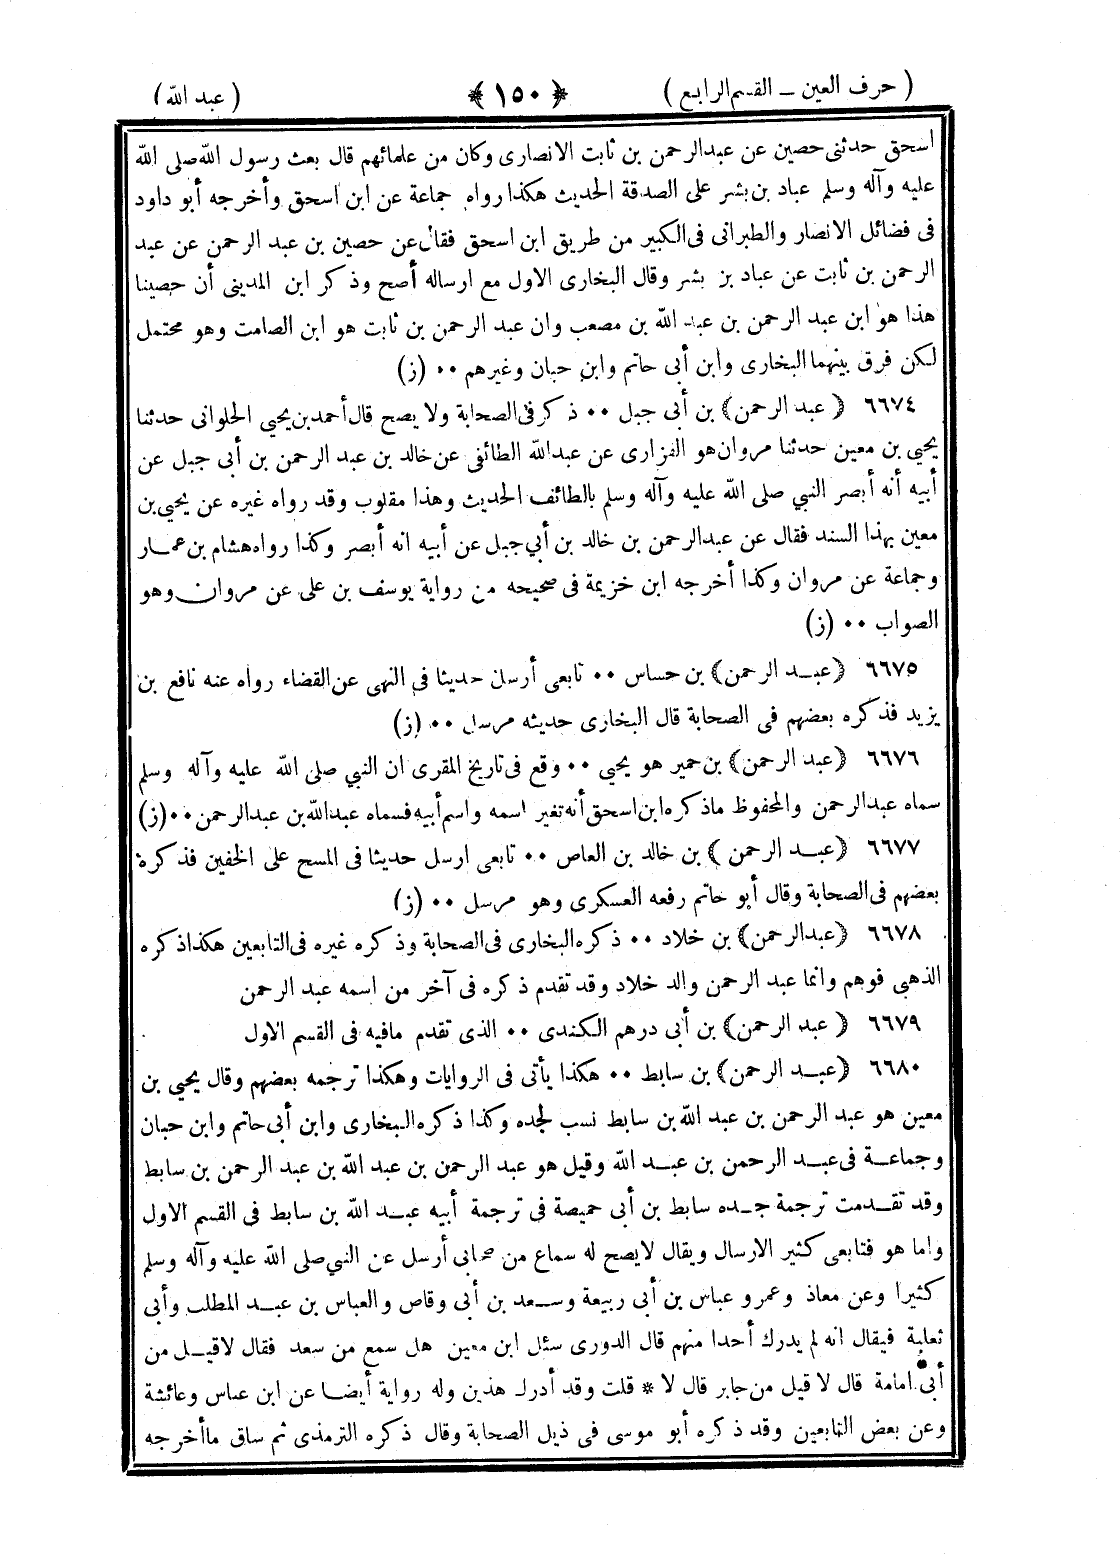 ( حرف العين ــ القسم الرابع )
﴿ ١٥٠ ﴾
( عبد الله )
اسحق حدثنى حصين عن عبدالرحمن بن ثابت الانصارى وكان من علمائهم قال بعث رسول الله صلى الله
عليه وآله وسلم عباد بن بشر على الصدقة الحديث هكذا رواه جماعة عن ابن اسحق وأخرجه أبو داود
فى فضائل الانصار والطبرانى فى الكبير من طريق ابن اسحق فقال عن حصين بن عبد الرحمن عن عبد
الرحمن بن ثابت عن عباد بن بشر وقال البخارى الاول مع ارساله أصح وذكر ابن المدينى أن حصينا
هذا هو ابن عبد الرحمن بن عبد الله بن مصعب وان عبد الرحمن بن ثابت هو ابن الصامت وهو محتمل
لكن فرق بينهما البخارى وابن أبى حاتم وابن حبان وغيرهم ٠٠ (ز)
٦٦٧٤ ﴿ عبد الرحمن ﴾ بن أبى جبل ٠٠ ذكر فى الصحابة ولا يصح قال أحمد بن يحيي الحلوانى حدثنا
يحيي بن معين حدثنا مروان هو الفزارى عن عبدالله الطائفى عن خالد بن عبد الرحمن بن أبى جبل عن
أبيه أنه أبصر النبي صلى الله عليه وآله وسلم بالطائف الحديث وهذا مقلوب وقد رواه غيره عن يحيي بن
معين بهذا السند فقال عن عبدالرحمن بن خالد بن أبي جبل عن أبيه انه أبصر وكذا رواه هشام بن عمار
وجماعة عن مروان وكذا أخرجه ابن خزيمة فى صحيحه من رواية يوسف بن على عن مروان وهو
الصواب ٠٠ (ز)
٦٦٧٥ ﴿ عبد الرحمن ﴾ بن حساس ٠٠ تابعى أرسل حديثا فى النهى عن القضاء رواه عنه نافع بن
يزيد فذكره بعضهم فى الصحابة قال البخارى حديثه مرسل ٠٠ (ز)
٦٦٧٦ ﴿ عبد الرحمن ﴾ بن حمير هو يحيي ٠٠ وقع فى تاريخ المقرى ان النبي صلى الله عليه وآله وسلم
سماه عبدالرحمن والمحفوظ ماذكره ابن اسحق أنه تغير اسمه واسم أبيه فسماه عبدالله بن عبدالرحمن ٠٠ (ز)
٦٦٧٧ ﴿ عبد الرحمن ﴾ بن خالد بن العاص ٠٠ تابعى ارسل حديثا فى المسح على الخفين فذكره
بعضهم فى الصحابة وقال أبو حاتم رفعه العسكرى وهو مرسل ٠٠ (ز)
٦٦٧٨ ﴿ عبدالرحمن ﴾ بن خلاد ٠٠ ذكره البخارى فى الصحابة وذكره غيره فى التابعين هكذا ذكره
الذهبى فوهم وانما عبد الرحمن والد خلاد وقد تقدم ذكره فى آخر من اسمه عبد الرحمن
٦٦٧٩ ﴿ عبد الرحمن ﴾ بن أبى درهم الكندى ٠٠ الذى تقدم مافيه فى القسم الاول
٦٦٨٠ ﴿ عبد الرحمن ﴾ بن سابط ٠٠ هكذا يأتى فى الروايات وهكذا ترجمه بعضهم وقال يحيي بن
معين هو عبد الرحمن بن عبد الله بن سابط نسب لجده وكذا ذكره البخارى وابن أبى حاتم وابن حبان
وجماعة فى عبد الرحمن بن عبد الله وقيل هو عبد الرحمن بن عبد الله بن عبد الرحمن بن سابط
وقد تقدمت ترجمة جده سابط بن أبى حميصة فى ترجمة أبيه عبد الله بن سابط فى القسم الاول
واما هو فتابعى كثير الارسال ويقال لايصح له سماع من صحابى أرسل عن النبي صلى الله عليه وآله وسلم
كثيرا وعن معاذ وعمر و عباس بن أبى ربيعة وسعد بن أبى وقاص والعباس بن عبد المطلب وأبى
ثعلبة فيقال انه لم يدرك أحدا منهم قال الدورى سئل ابن معين هل سمع من سعد فقال لا قيل من
أبى امامة قال لا قيل من جابر قال لا * قلت وقد أدرك هذين وله رواية أيضا عن ابن عباس وعائشة
وعن بعض التابعين وقد ذكره أبو موسى فى ذيل الصحابة وقال ذكره الترمذى ثم ساق ماأخرجه